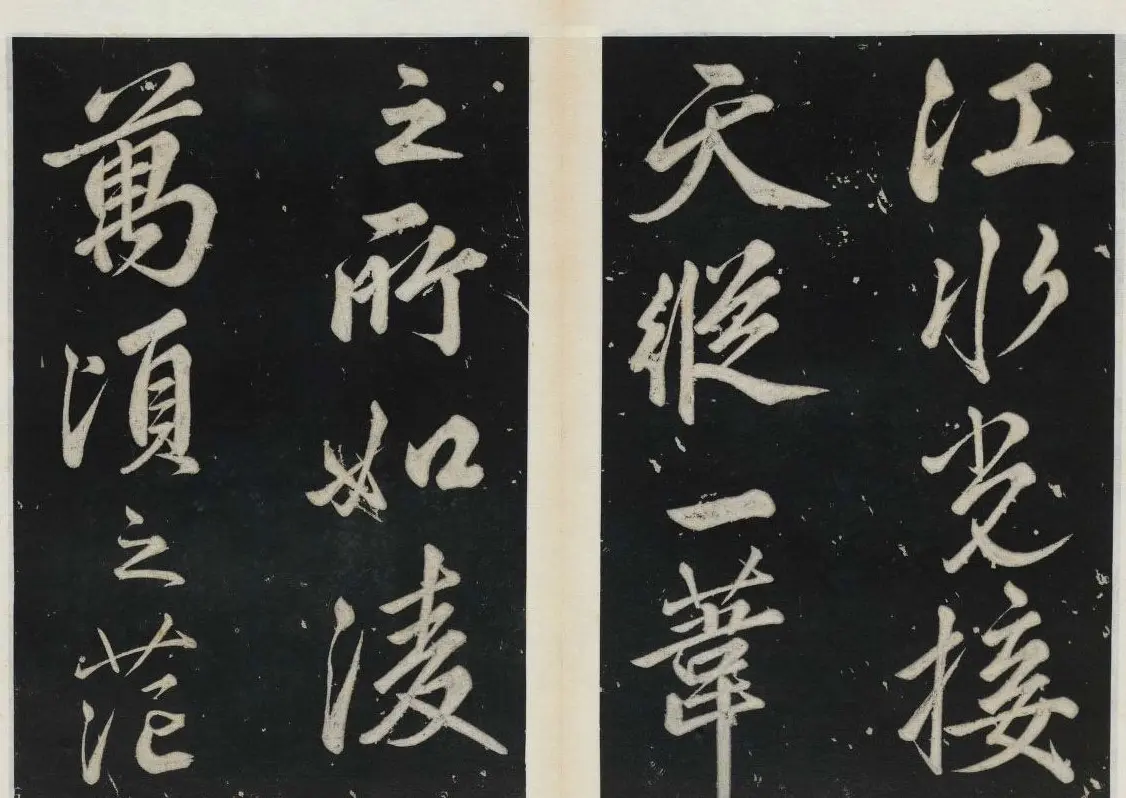 江水光接
天縱一葦
之所如淩
萬頃之茫